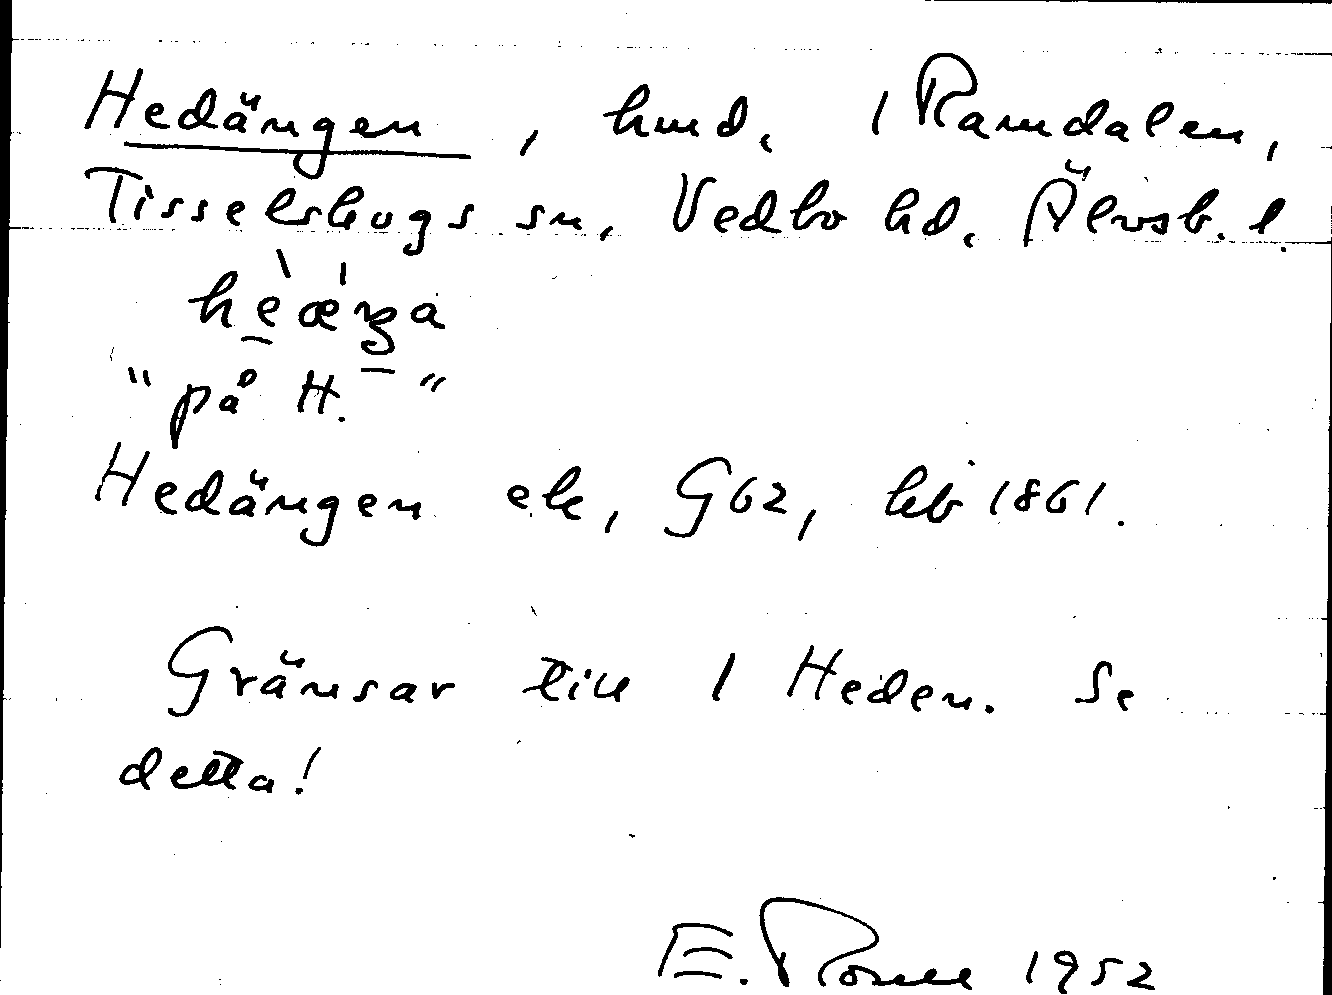 Hedängen, hmd. 1 Ramdalen,
Tisselskogs sn, Vedbo hd. Älvsb. l.
"på H."
Hedängen ek, G62, hb 1861.
Gränsar till 1 Heden. Se
detta!
E. 1952